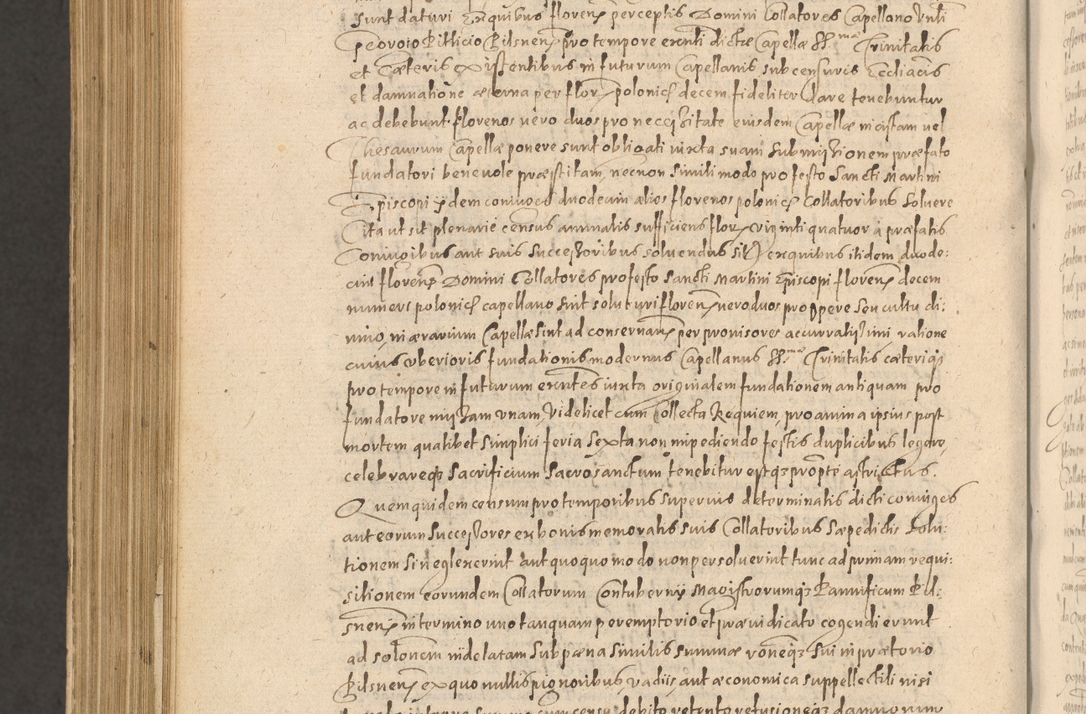 sunt daturi Ex quibus florenꝫ perceptis Domini Collatores Capellano
Pedroio Pillicio Pilsnenꝫ pro tempore exnti dictæ Capellæ SSmæ Trinitatis
et Cæteris existentibus in futurum Capellanis sub censuris Eccliacis
et damnatione æterna per florꝫ polonicꝫ decem fideliter dare tenebuntur
ac debebunt florenos vero duos pro necessitate eiusdem Capellæ in cistam vel
Thesaurum Capellæ ponere sunt obligati iuxta suam submissionem præfato
fundatori benevole præstitam, necnon simili modo pro festo Sancti Martini
Episcopi ydem coniuges duodecim alios florenos polonicꝫ Collatoribus solvere
Ita ut sit plenarie census annualis sufficiens florꝫ viginti quatuor a præfatis
Coniugibus aut suis successoribus solvendus sit ex quibus itidem duode:
cim florenꝫ Domini Collatores pro festo Sancti Martini Episcopi florenꝫ decem
numeri polonicꝫ capellano sint soluturi florenꝫ vero duos pro opere seu cultu di:
vino, in ærarium Capellæ sint ad conservanꝫ per provisores accurratissimi ratione
cuius uberioris fundationis modernus Capellanus SSmæ Trinitatis cæteriqꝫ
pro tempore in futurum exntes iuxta originalem fundationem antiquam pro
fundatore missam unam, videlicet cum collecta Requiem, pro anima ipsius post
mortem qualibet simplici feria sexta non impediendo festis duplicibus legere,
celebrareqꝫ sacrificium sacrosanctum tenebitur estqꝫ propte astrictus.
Quem quidem censum pro temporibus superius determinatis dicti coniuges
aut eorum successores ex bonis memoratis suis Collatoribus sæpedictis solu:
tionem si neglexerint aut quoquo modo non persolverint tunc ad primam requi:
sitionem eorundem Collatorum Contubernij Magistrorumqꝫ Pannificum Pil:
snenꝫ in termino uno tanquam peremptorio et præiudicato cogendi erunt
ad solonem indelatam sub pæna similis summæ roneqꝫ sui in prætorio
Pilsnenꝫ ex quo nullis pignoribus, vadiis, aut æconomica suppellectili nisi
censu debito retento refusioneqꝫ damnorum